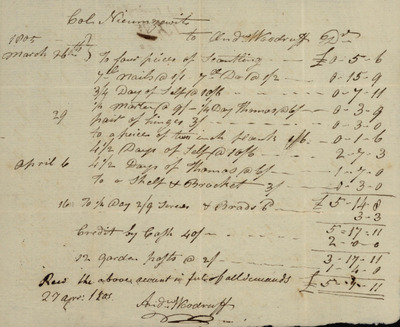 Col. Niemcewitz
1805 to And Woodruff Dr
March 26th To four pieces of Scantling £0-5-6
7 lb Nails @ 1/1 7 Do @ 1/2 0-15-9
3/4 Day of Self @ 10/6 0-7-11
1/2 Day Thomas @ 6/ 0-3-9
29 pair of hinges 3/ 0-3-0
To 9 pieces of two inch plank 0-7-6
4 1/2 Days of Self @ 10/6 2-7-3
April 6 4 1/2 Days of Thomas @ 6/ 1-7-0
To a Shelf & Bracket 3/ 0-3-0
£5-14-8
16 To 1/4 Day 2/9 Screws & Brads 6 3-3
5-17-11
Credit by Cash 40/ 2-0-0
3-17-11
12 garden posts @ 2/ 1-4-0
£5-1-11
Recd the above account in full of all demands
27 Apr. 1805
Andw Woodruff